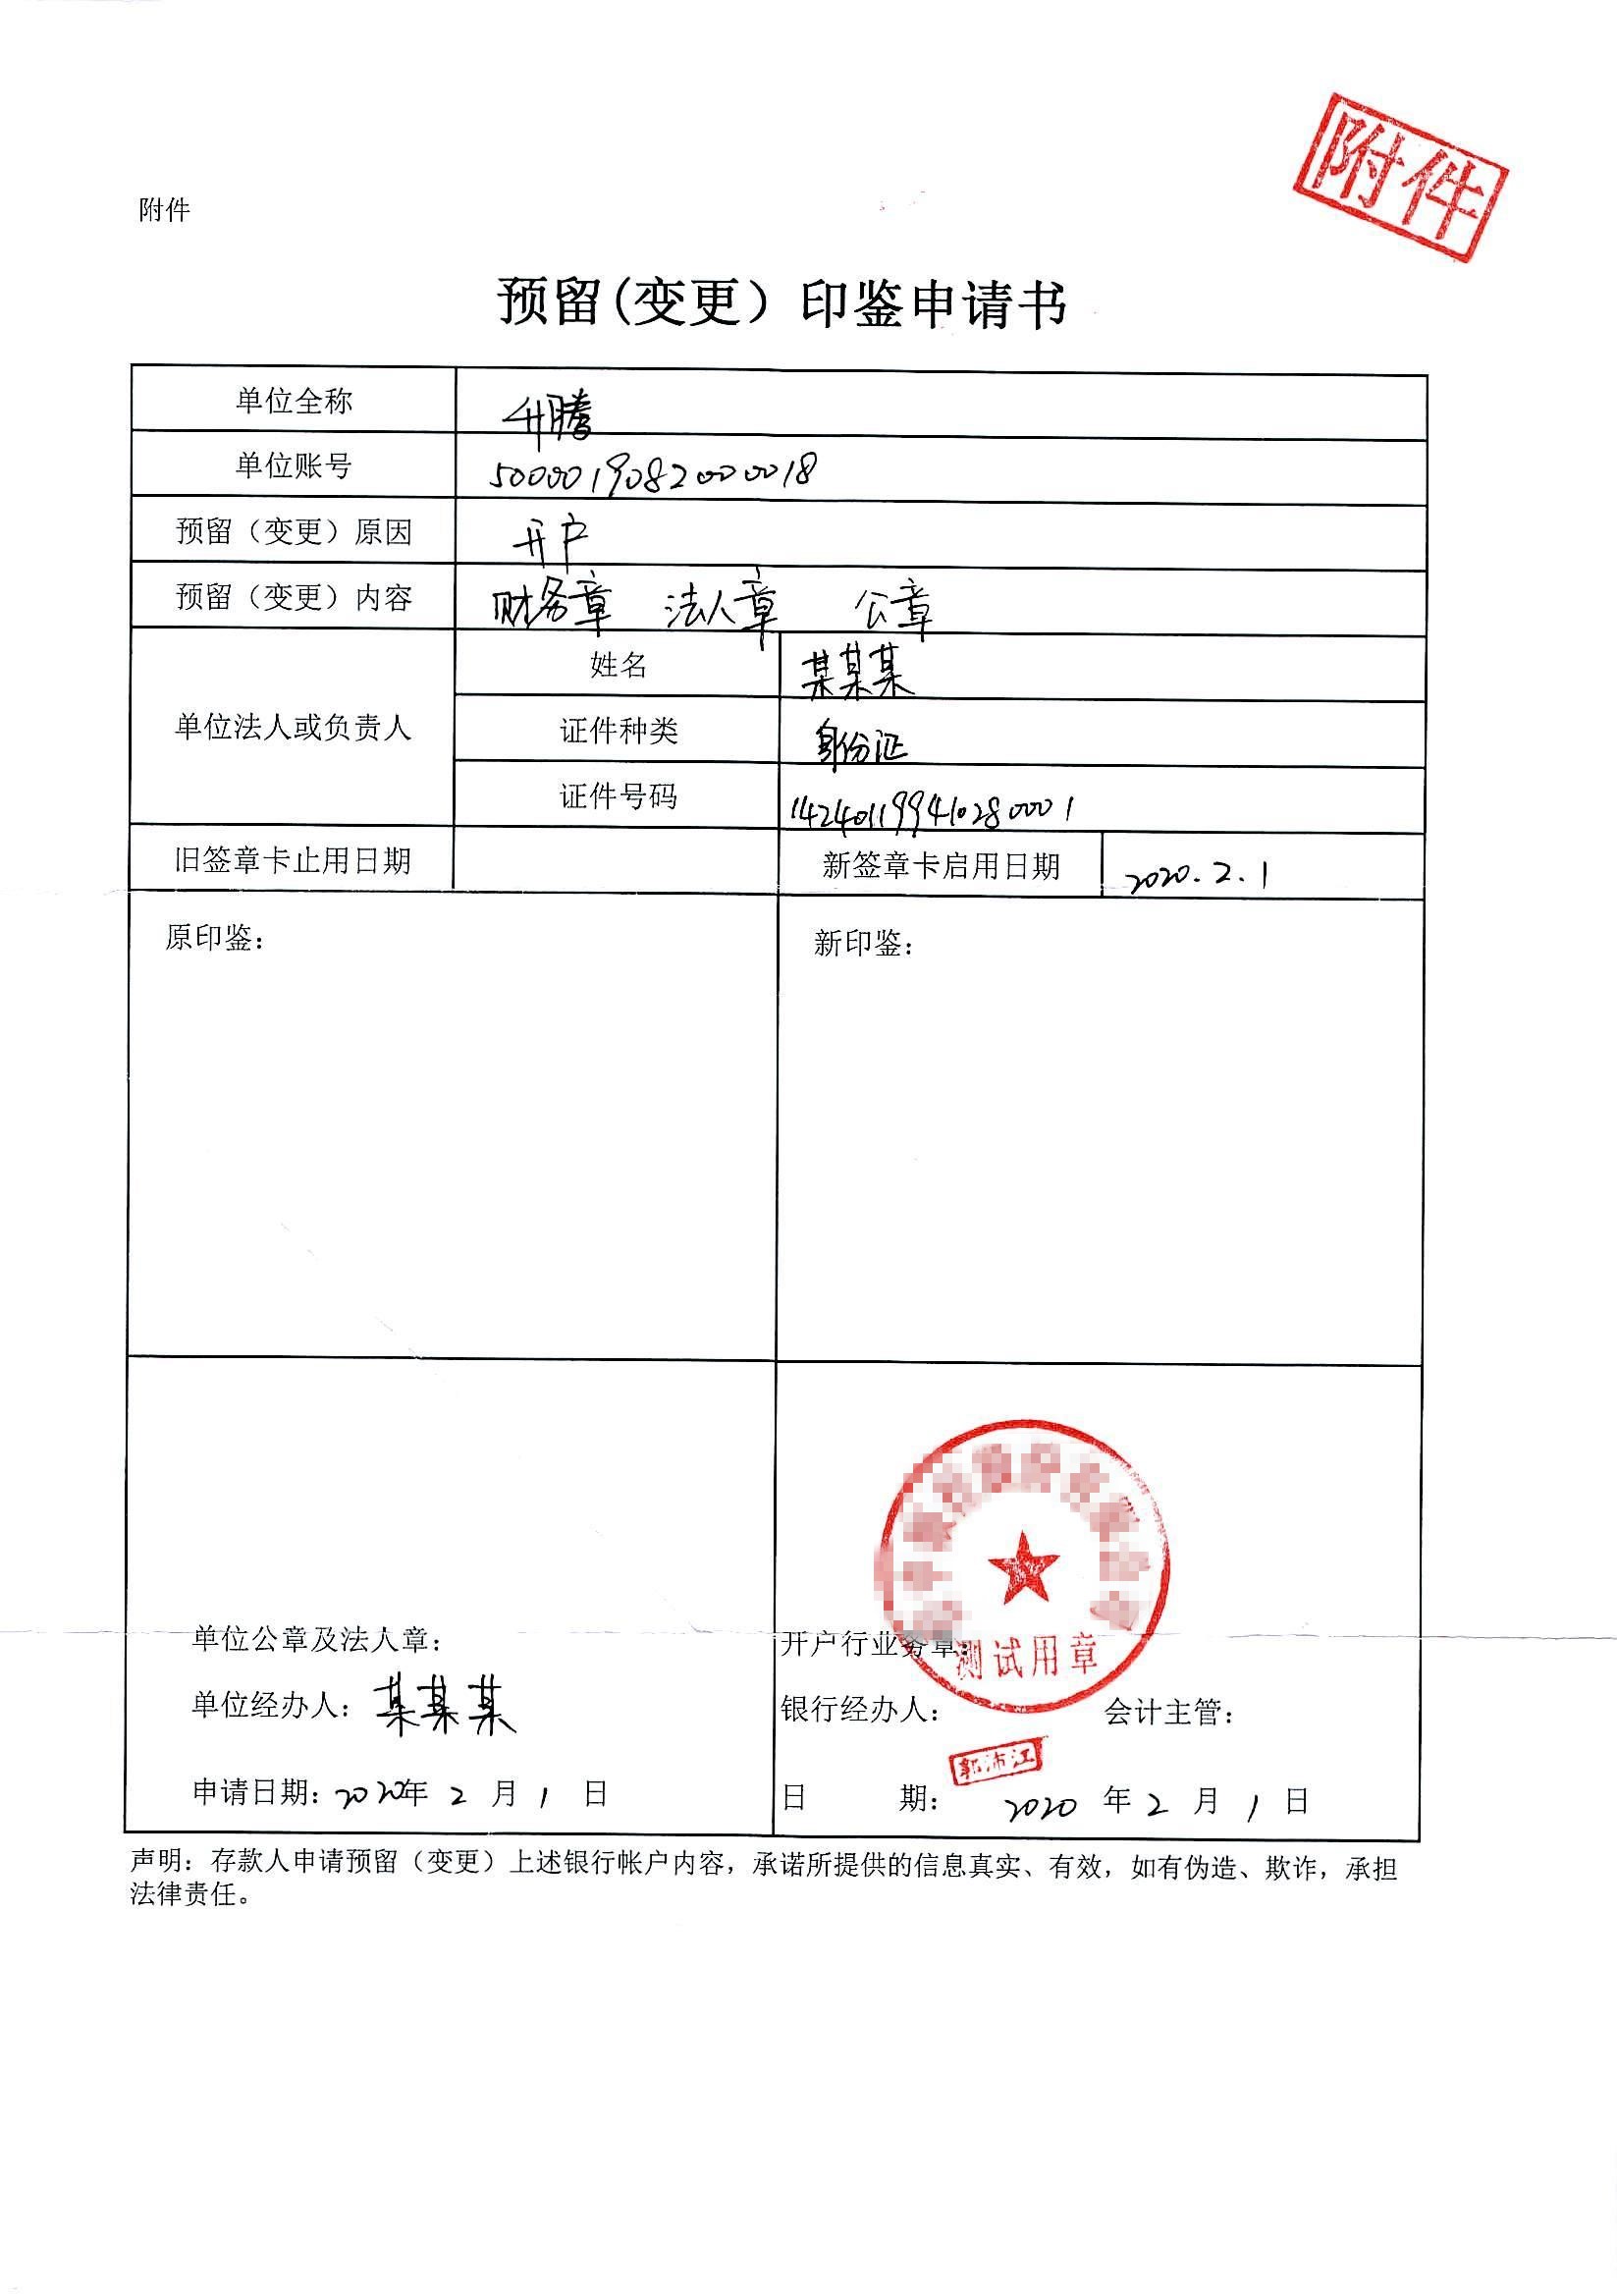 附件
附件
预留(变更）印鉴申请书
单位全称 升腾
单位账号 5000019082000018
预留（变更）原因 开户
预留（变更）内容 财务章 法人章 公章
单位法人或负责人 姓名 某某某
证件种类 身份证
证件号码 142401199410280001
旧签章卡止用日期 新签章卡启用日期 2020.2.1
原印鉴： 新印鉴：
单位公章及法人章： 开户行业务章：
测试用章
单位经办人：某某某 银行经办人： 会计主管：
郭沛江
申请日期：2020年 2 月 1 日 日 期： 2020 年 2 月 1 日
声明：存款人申请预留（变更）上述银行帐户内容，承诺所提供的信息真实、有效，如有伪造、欺诈，承担
法律责任。